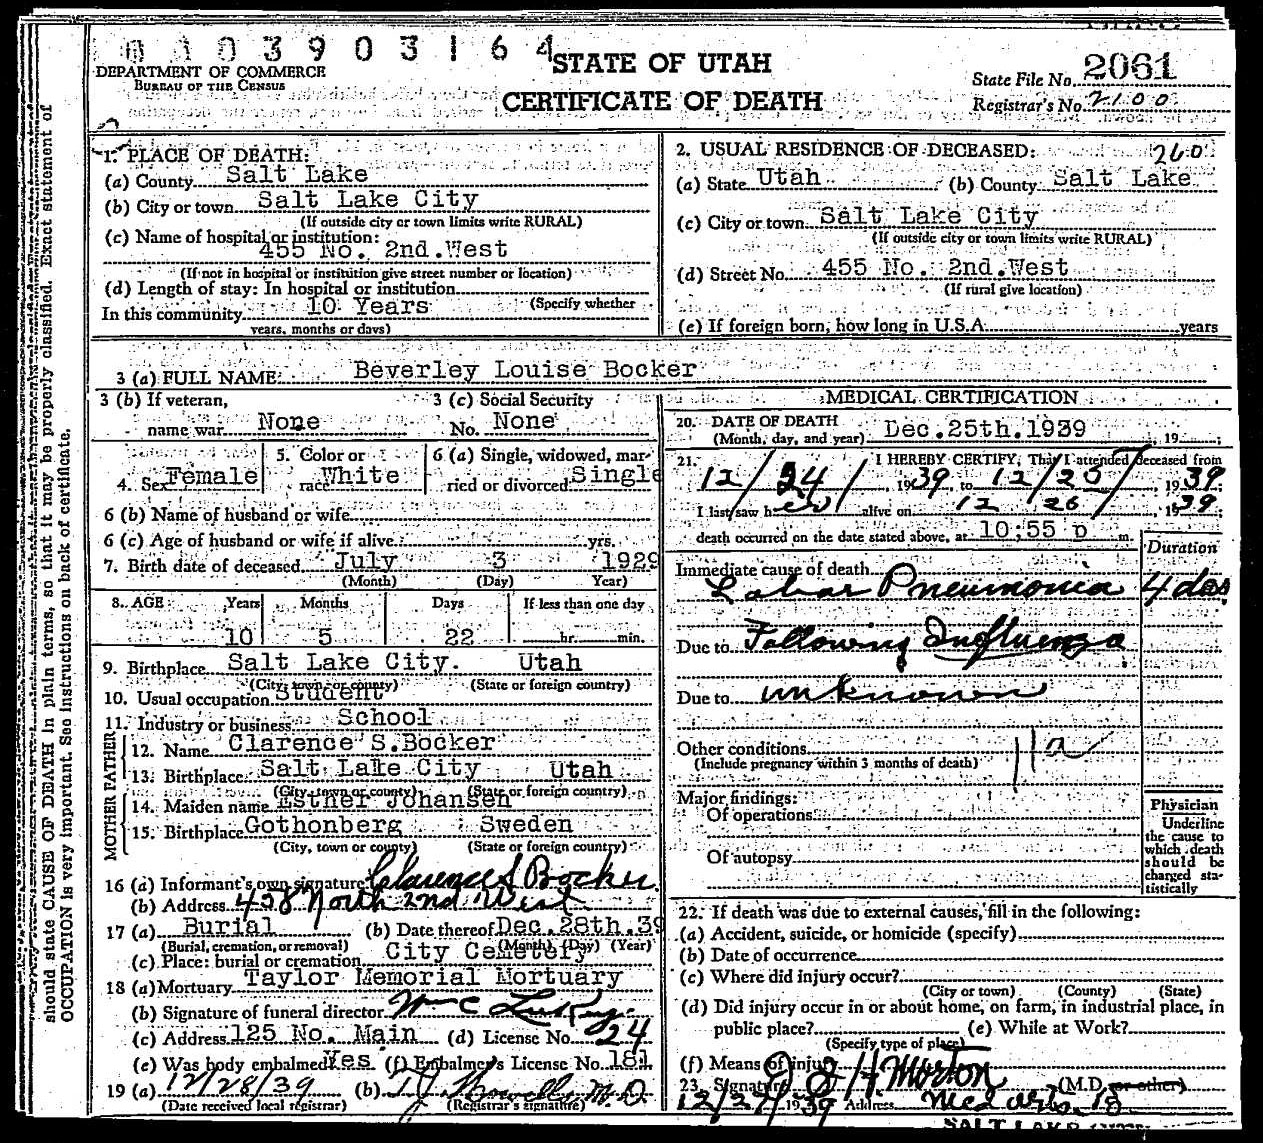 0 1 0 3 9 0 3 1 6 4
DEPARTMENT OF COMMERCE
BUREAU OF THE CENSUS
STATE OF UTAH
CERTIFICATE OF DEATH
State File No. 2061
Registrar's No. 2100
1. PLACE OF DEATH:
(a) County Salt Lake
(b) City or town Salt Lake City
(If outside city or town limits write RURAL)
(c) Name of hospital or institution:
455 No. 2nd.West
(If not in hospital or institution give street number or location)
(d) Length of stay: In hospital or institution
(Specify whether
In this community 10 Years
years, months or days)
2. USUAL RESIDENCE OF DECEASED: 260
(a) State Utah (b) County Salt Lake
(c) City or town Salt Lake City
(If outside city or town limits write RURAL)
(d) Street No. 455 No. 2nd.West
(If rural give location)
(e) If foreign born, how long in U.S.A. years
3 (a) FULL NAME Beverley Louise Bocker
3 (b) If veteran, name war None
3 (c) Social Security No. None
4. Sex Female
5. Color or race White
6 (a) Single, widowed, married or divorced Single
6 (b) Name of husband or wife
6 (c) Age of husband or wife if alive yrs.
7. Birth date of deceased July 3 1929
(Month) (Day) Year)
8. AGE Years Months Days If less than one day
10 5 22 hr. min.
9. Birthplace Salt Lake City. Utah
(City, town or county) (State or foreign country)
10. Usual occupation Student
11. Industry or business School
FATHER
12. Name Clarence S.Bocker
13. Birthplace Salt Lake City Utah
(City, town or county) (State or foreign country)
MOTHER
14. Maiden name Esther Johansen
15. Birthplace Gothonberg Sweden
(City, town or county) (State or foreign country)
16 (a) Informant's own signature Clarence S Bocker
(b) Address 458 North 2nd West
17 (a) Burial (b) Date thereof Dec.28th.39
(Burial, cremation, or removal) (Month) (Day) (Year)
(c) Place: burial or cremation City Cemetery
18 (a) Mortuary Taylor Memorial Mortuary
(b) Signature of funeral director Wm C
(c) Address 125 No. Main (d) License No. 24
(e) Was body embalmed Yes (f) Embalmer's License No. 181
19 (a) 12/28/39 (b) T J Howells M.D.
(Date received local registrar) (Registrar's signature)
MEDICAL CERTIFICATION
20. DATE OF DEATH
(Month, day, and year) Dec.25th.1939 , 19 ;
21. I HEREBY CERTIFY, That I attended deceased from
12/24/, 1939, to 12/25/, 1939
I last saw her alive on 12 25/, 1939;
death occurred on the date stated above, at 10;55 p m.
Duration
Immediate cause of death
Lobar Pneumonia 4 das
Due to Following Influenza
Due to unknown
Other conditions
(Include pregnancy within 3 months of death)
11a
Major findings:
Of operations
Of autopsy
Physician
Underline
the cause to
which death
should be
charged sta-
tistically
22. If death was due to external causes, fill in the following:
(a) Accident, suicide, or homicide (specify)
(b) Date of occurrence
(c) Where did injury occur?
(City or town) (County) (State)
(d) Did injury occur in or about home, on farm, in industrial place, in
public place? (e) While at Work?
(Specify type of place)
(f) Means of injury
23. Signature H. Morton (M.D. or other)
12/27/1939 Address Med Arts. Bg
SALT LAKE
should state CAUSE OF DEATH in plain terms, so that it may be properly classified. Exact statement of
OCCUPATION is very important. See instructions on back of certificate.